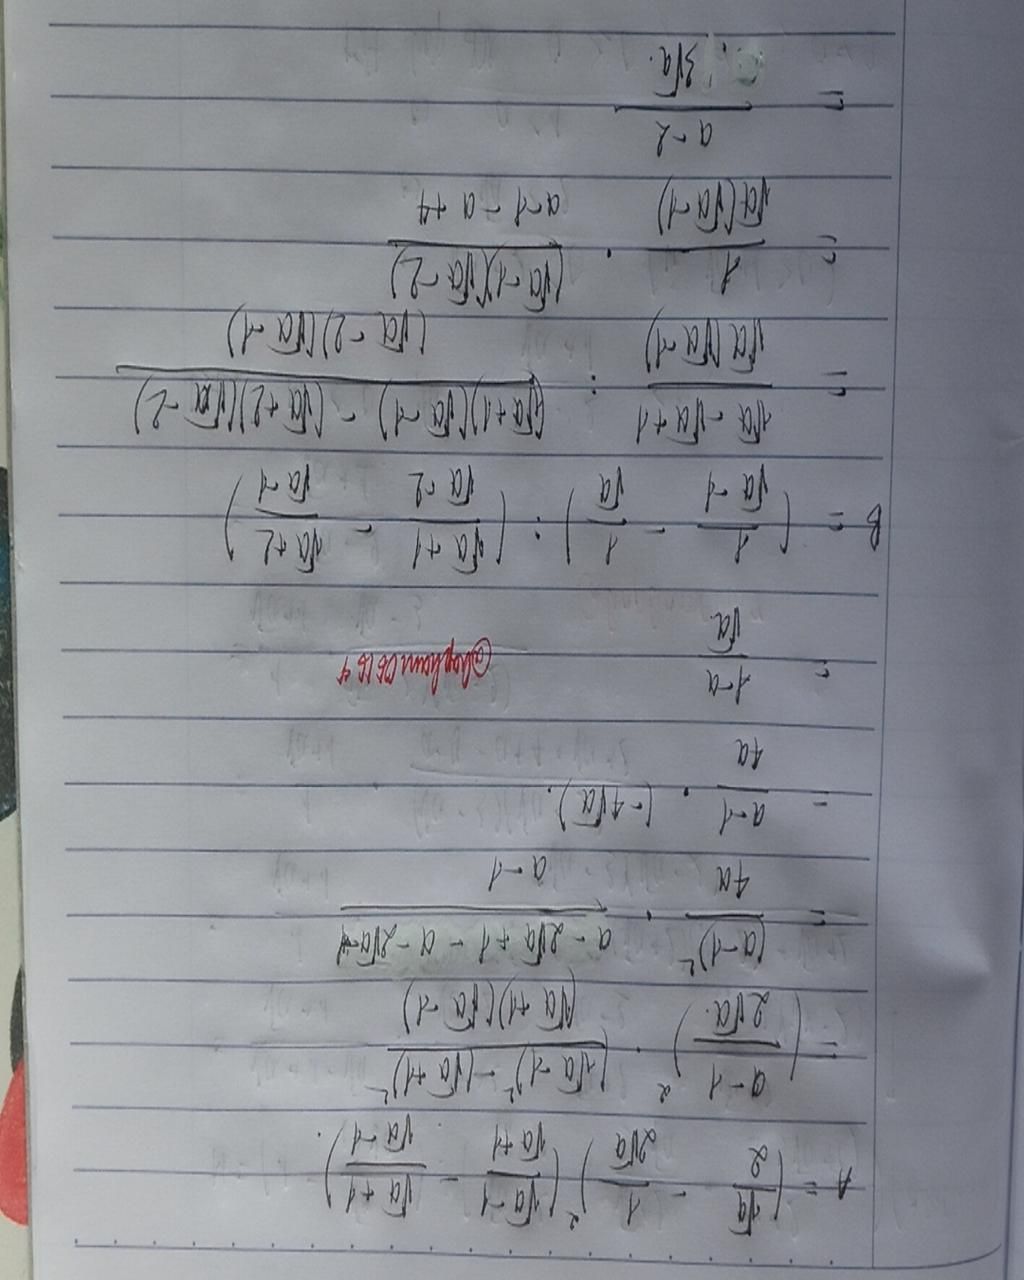 A = (√a/2 − 1/2√a)² (√a−1/√a+1 − √a+1/√a−1).
= (a−1/2√a.)² . (√a−1)² − (√a+1)²/(√a+1)(√a−1)
= (a−1)²/4a . a−2√a+1−a−2√a−1/a−1
= a−1/4a . (−4√a).
= 1−a/√a
B = (1/√a−1 − 1/√a) : (√a+1/√a−2 − √a+2/√a−1)
= √a−√a+1/√a(√a−1) : (√a+1)(√a−1) − (√a+2)(√a−2)/(√a−2)(√a−1)
= 1/√a(√a−1) . (√a−1)(√a−2)/a−1−a+4
= a−2/3√a.